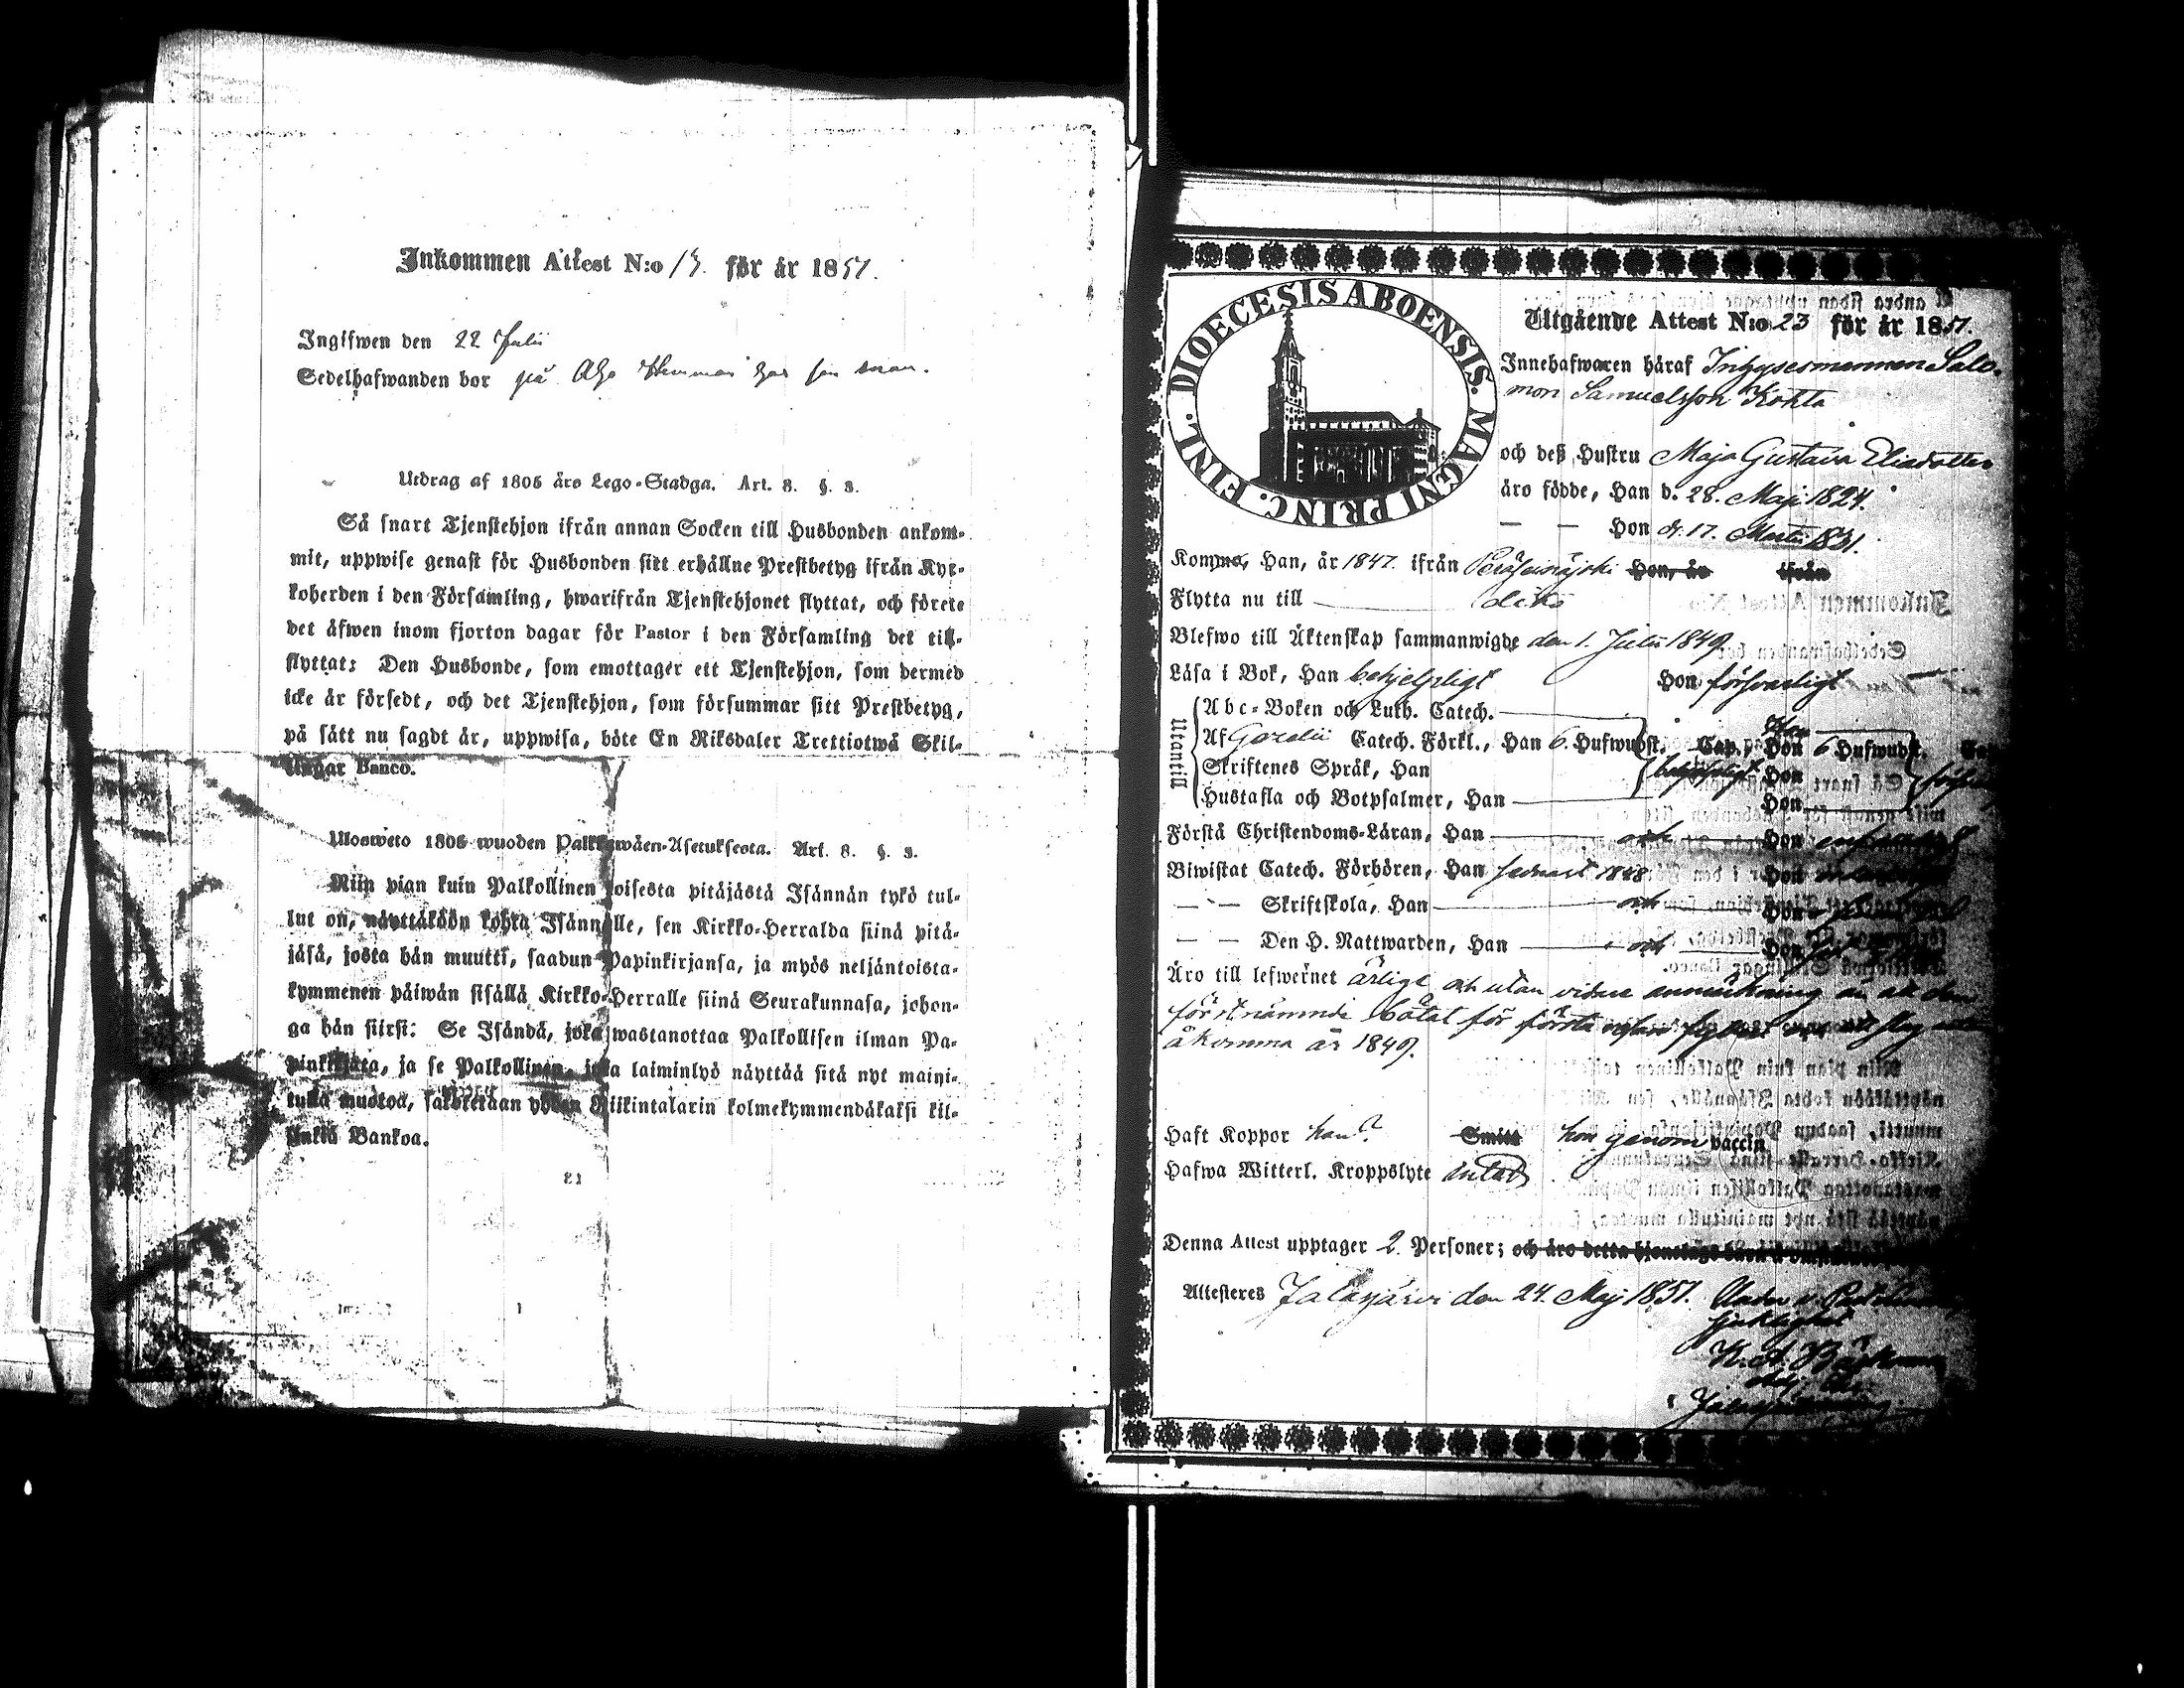 Inkommen Attest N:o 13. för år 1851.
Ingifwen den 22 Julii
Sedelhafwanden bor på
Utdrag af 1805 års Lego-Stadga. Art. 8. §. 3.
Så snart Tjenstehjon ifrån annan Socken till Husbonden ankom-
mit, uppwise genast för Husbonden sitt erhållne Prestbetyg ifrån Kyr-
koherden i den Församling, hwarifrån Tjenstehjonet flyttat, och förete
det äfwen inom fjorton dagar för Pastor i den Församling det till-
flyttat: Den Husbonde, som emottager ett Tjenstehjon, som dermed
icke är försedt, och det Tjenstehjon, som försummar sitt Prestbetyg,
på sätt nu sagdt är, uppwisa, böte En Riksdaler Trettiotwå Skil-
lingar Banco.
Ulosweto 1805 wuoden Palkkawäen-Asetuksesta. Art. 8. §. 3.
Niin pian kuin Palkollinen toisesta pitäjästä Isännän tykö tul-
lut on, näyttäköön kohta Isännälle, sen Kirkko-Herralda siinä pitä-
jäsä, josta hän muutti, saadun Papinkirjansa, ja myös neljäntoista-
kymmenen päiwän sisällä Kirkko-Herralle siinä Seurakunnasa, johon-
ga hän siirsi: Se Isändä, joka wastanottaa Palkollisen ilman Pa-
pinkirjata, ja se Palkollinen, joka laiminlyö näyttää sitä nyt maini-
tulla muotoa, sakotetaan yhden Riikintalarin kolmekymmendäkaksi kil-
linkiä Bankoa.
DIOECESIS ABOENSIS. MAGNI PRINC. FINL.
Utgående Attest N:o 23 för år 1851.
Innehafwaren häraf Inhysesmannen Salo-
mon Samuelsson Kohta
och deß Hustru Maja Gustava Eliadotter
äro födde, Han d. 28. Maji 1824.
— — Hon d. 17. Martii 1831.
Komne, Han, år 1847 ifrån Peräseinäjoki Hon, år ifrån
Flytta nu till dito
Blefwo till Äktenskap sammanwigde den 1. Julii 1849.
Läsa i Bok, Han behjelpligt Hon försvarligt
Utantill
Abc-Boken och Luth. Catech.
Af Gezelii Catech. Förkl., Han 6. Hufwudst. Cap. Hon 6 Hufwudst.
Skriftenes Språk, Han behjelpligt Hon
Hustafla och Botpsalmer, Han Hon
Förstå Christendoms-Läran, Han och Hon
Biwistat Catech. Förhören, Han senast 1848 Hon
— — Skriftskola, Han och Hon
— — Den H. Nattwarden, Han och Hon
Äro till lefwernet ärlige och utan vidare anmärkning än att den
förstnämnde bötat för första resan
åkomma år 1849.
Haft Koppor han Smitt hon genom vaccin
Hafwa Witterl. Kroppslyte
Denna Attest upptager 2. Personer; och äro detta
Attesteres Jalasjärvi den 24. Maji 1851.